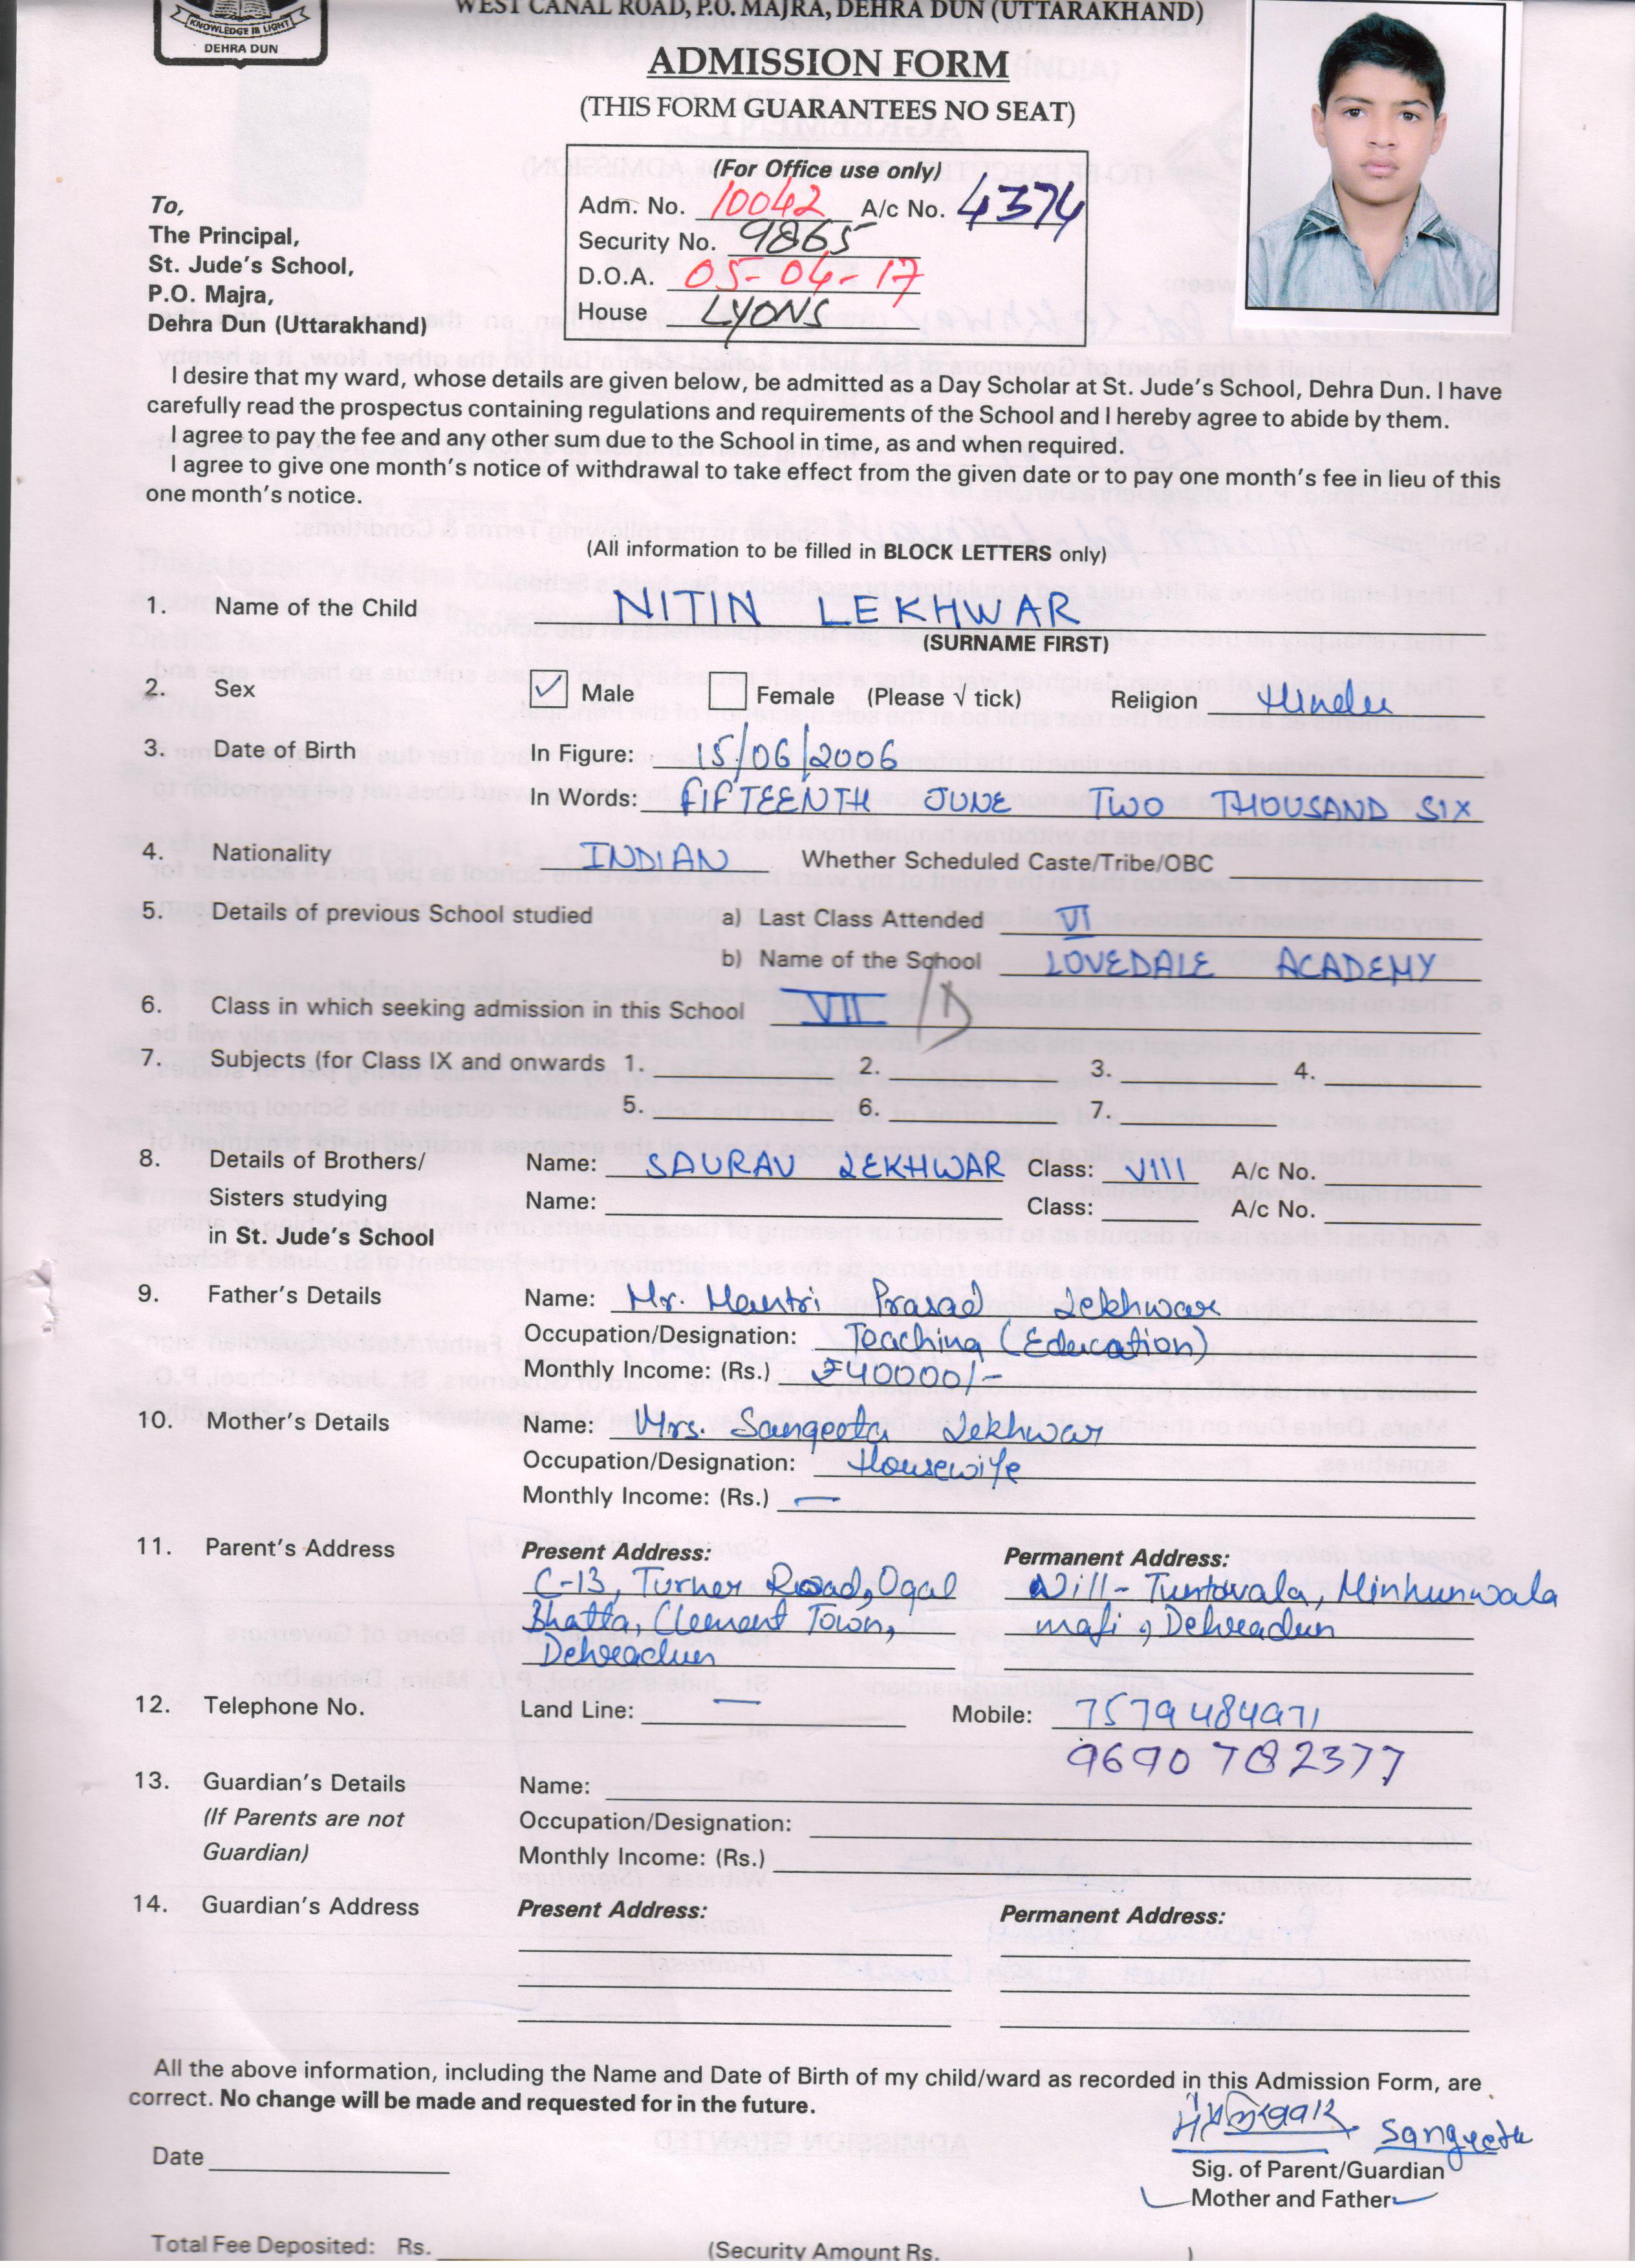 KNOWLEDGE IS LIGHT
DEHRA DUN
WEST CANAL ROAD, P.O. MAJRA, DEHRA DUN (UTTARAKHAND)
ADMISSION FORM
(THIS FORM GUARANTEES NO SEAT)
(For Office use only)
Adm. No. 10042 A/c No. 4374
Security No. 9865
D.O.A. 05-04-17
House LYONS
To,
The Principal,
St. Jude's School,
P.O. Majra,
Dehra Dun (Uttarakhand)
I desire that my ward, whose details are given below, be admitted as a Day Scholar at St. Jude's School, Dehra Dun. I have
carefully read the prospectus containing regulations and requirements of the School and I hereby agree to abide by them.
I agree to pay the fee and any other sum due to the School in time, as and when required.
I agree to give one month's notice of withdrawal to take effect from the given date or to pay one month's fee in lieu of this
one month's notice.
(All information to be filled in BLOCK LETTERS only)
1. Name of the Child NITIN LEKHWAR
(SURNAME FIRST)
2. Sex ✓ Male Female (Please √ tick) Religion Hindu
3. Date of Birth In Figure: 15/06/2006
In Words: FIFTEENTH JUNE TWO THOUSAND SIX
4. Nationality INDIAN Whether Scheduled Caste/Tribe/OBC
5. Details of previous School studied a) Last Class Attended VI
b) Name of the School LOVEDALE ACADEMY
6. Class in which seeking admission in this School VII /D
7. Subjects (for Class IX and onwards 1. 2. 3. 4.
5. 6. 7.
8. Details of Brothers/ Name: SAURAV LEKHWAR Class: VIII A/c No.
Sisters studying Name: Class: A/c No.
in St. Jude's School
9. Father's Details Name: Mr. Mantri Prasad Lekhwar
Occupation/Designation: Teaching (Education)
Monthly Income: (Rs.) ₹40000/-
10. Mother's Details Name: Mrs. Sangeeta Lekhwar
Occupation/Designation: Housewife
Monthly Income: (Rs.) —
11. Parent's Address Present Address: Permanent Address:
C-13, Turner Road, Ogal Vill- Tuntovala, Minhunwala
Bhatta, Clement Town, mafi, Dehradun
Dehradun
12. Telephone No. Land Line: — Mobile: 7579484971
9690782377
13. Guardian's Details Name:
(If Parents are not Occupation/Designation:
Guardian) Monthly Income: (Rs.)
14. Guardian's Address Present Address: Permanent Address:
All the above information, including the Name and Date of Birth of my child/ward as recorded in this Admission Form, are
correct. No change will be made and requested for in the future.
Sangeeta
Date
Sig. of Parent/Guardian
Mother and Father
Total Fee Deposited: Rs. (Security Amount Rs. )